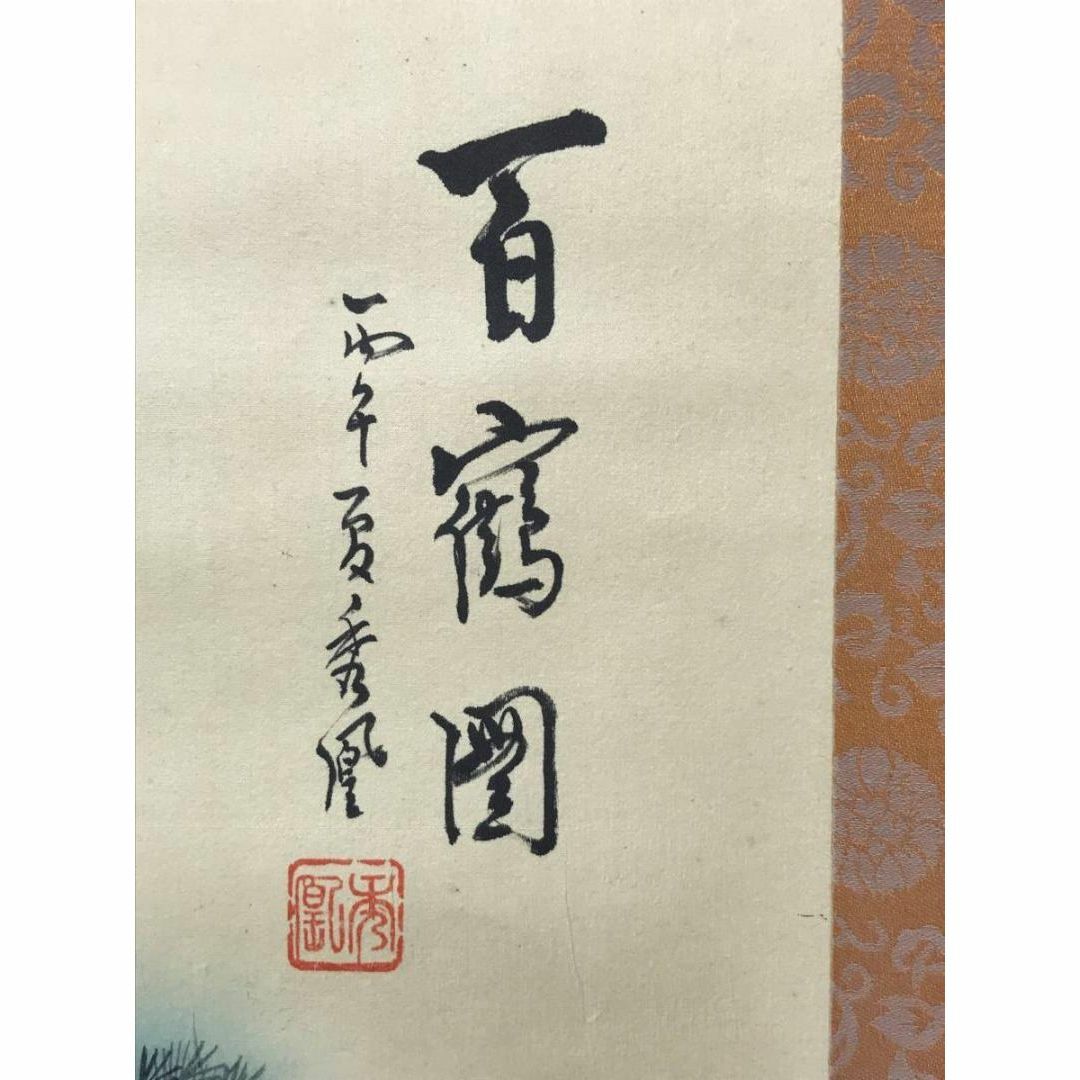 百鶴圖
丙午夏秀凰
秀凰